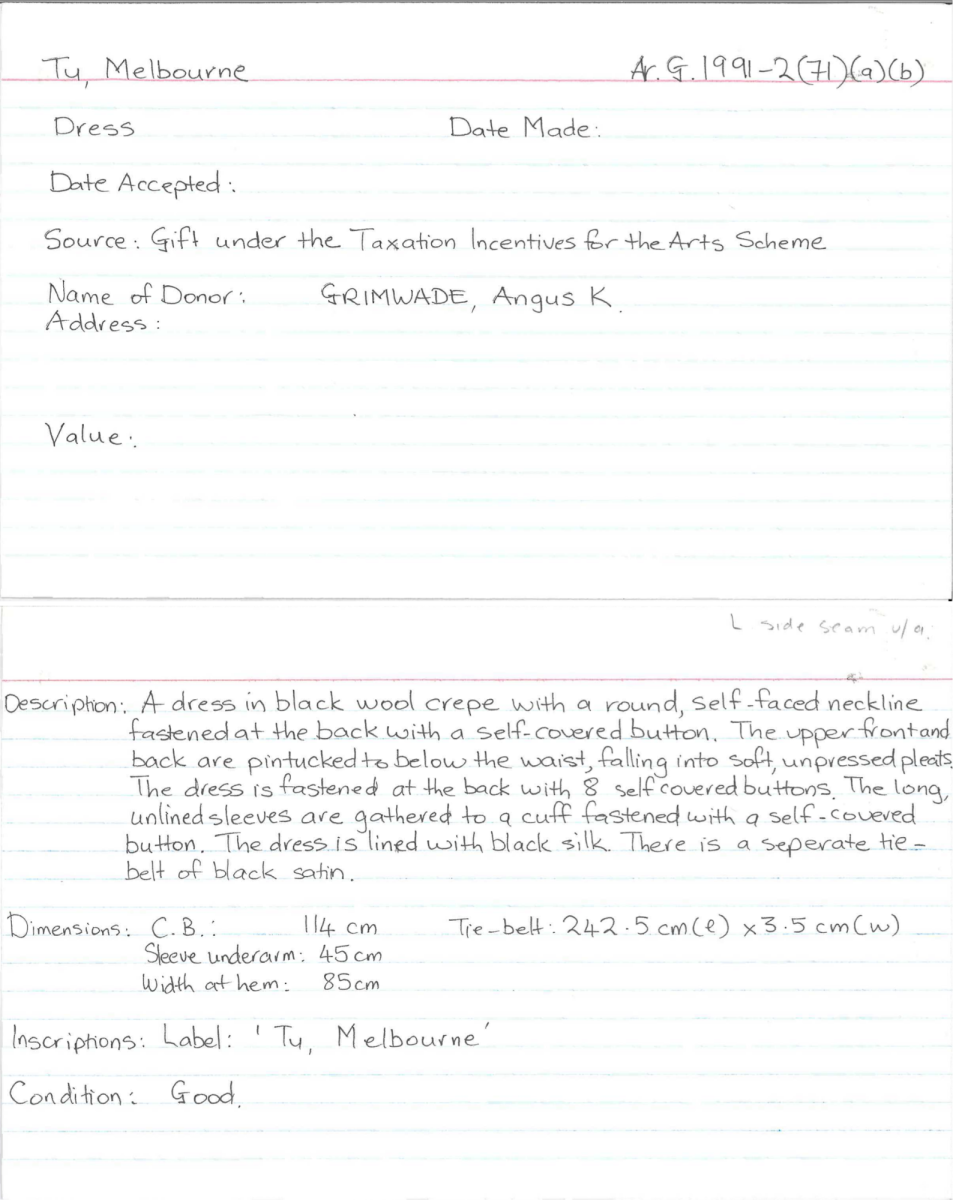 Tu, Melbourne Ar. G. 1991-2(71)(a)(b)
Dress Date Made:
Date Accepted:
Source: Gift under the Taxation Incentives for the Arts Scheme
Name of Donor: GRIMWADE, Angus K.
Address:
Value:
L side seam u/a.
Description: A dress in black wool crepe with a round, self-faced neckline
fastened at the back with a self-covered button. The upper front and
back are pintucked to below the waist, falling into soft, unpressed pleats.
The dress is fastened at the back with 8 self covered buttons. The long,
unlined sleeves are gathered to a cuff fastened with a self-covered
button. The dress is lined with black silk. There is a seperate tie-
belt of black satin.
Dimensions: C.B.: 114 cm Tie-belt: 242.5 cm (l) x 3.5 cm (w)
Sleeve underarm: 45 cm
Width at hem: 85cm
Inscriptions: Label: 'Tu, Melbourne'
Condition: Good.